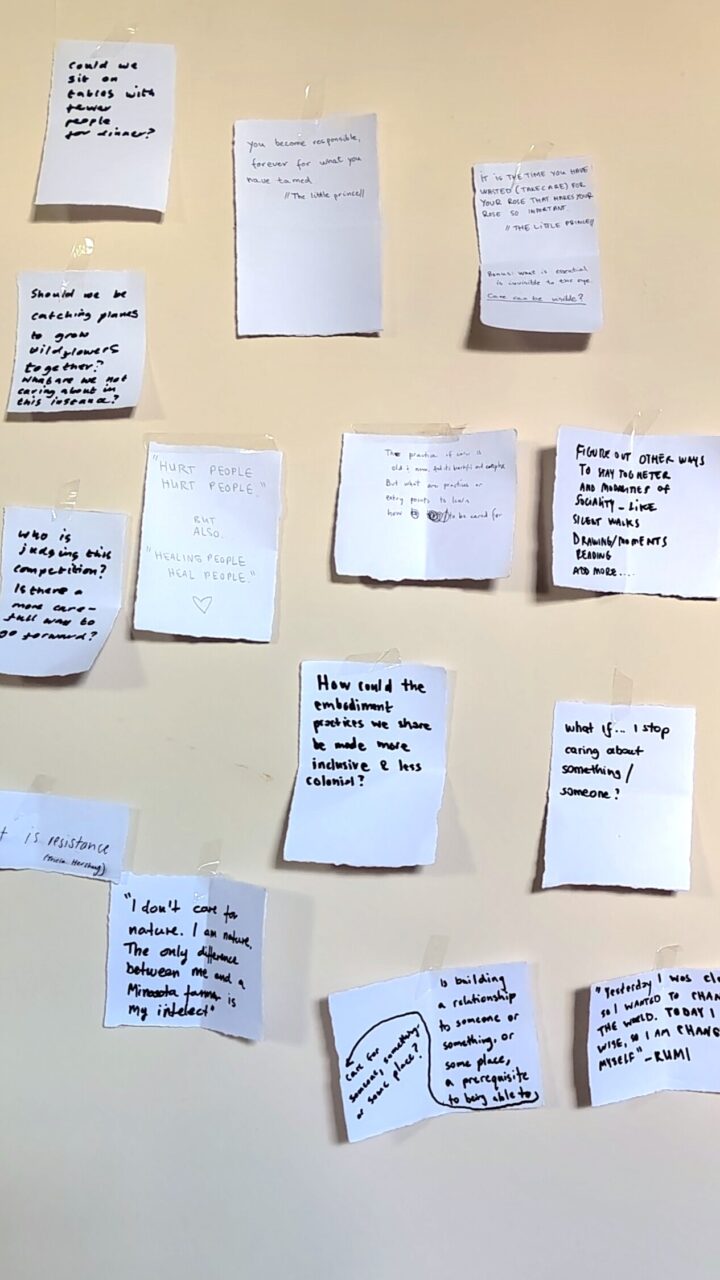 Could we
sit on
tables with
fewer
people
for dinner?
you become responsible,
forever for what you
have tamed
//The little prince//
IT IS THE TIME YOU HAVE
WASTED (TAKE CARE) FOR
YOUR ROSE THAT MAKES YOUR
ROSE SO IMPORTANT.
// THE LITTLE PRINCE//
Bonus: what is essential
is invisible to the eye.
Care can be visible?
Should we be
catching planes
to grow
wildflowers
together?
What are we not
caring about in
this instance?
"HURT PEOPLE
HURT PEOPLE."
BUT
ALSO.
"HEALING PEOPLE
HEAL PEOPLE."
The practice of care is
old & new, and its beautiful and complex
But what are practices or
entry points to learn
how to be cared for
FIGURE OUT OTHER WAYS
TO STAY TOGHETER
AND MODALITIES OF
SOCIALITY - LIKE
SILENT WALKS
DRAWING/MOMENTS
READING
ADD MORE....
who is
judging this
competition?
Is there a
more care-
full way to
go forward?
How could the
embodiment
practices we share
be made more
inclusive & less
colonial?
what if... I stop
caring about
something/
someone?
t is resistance
(Tricia Hersey)
"I don't care for
nature. I am nature.
The only difference
between me and a
is
my intelect"
Is building
a relationship
to someone or
something, or
some place,
a prerequisite
to being able to
care for
someone, something
or some place?
"Yesterday I was cle
so I WANTED TO CHAN
THE WORLD. TODAY I
WISE, SO I AM CHANG
MYSELF" - RUMI